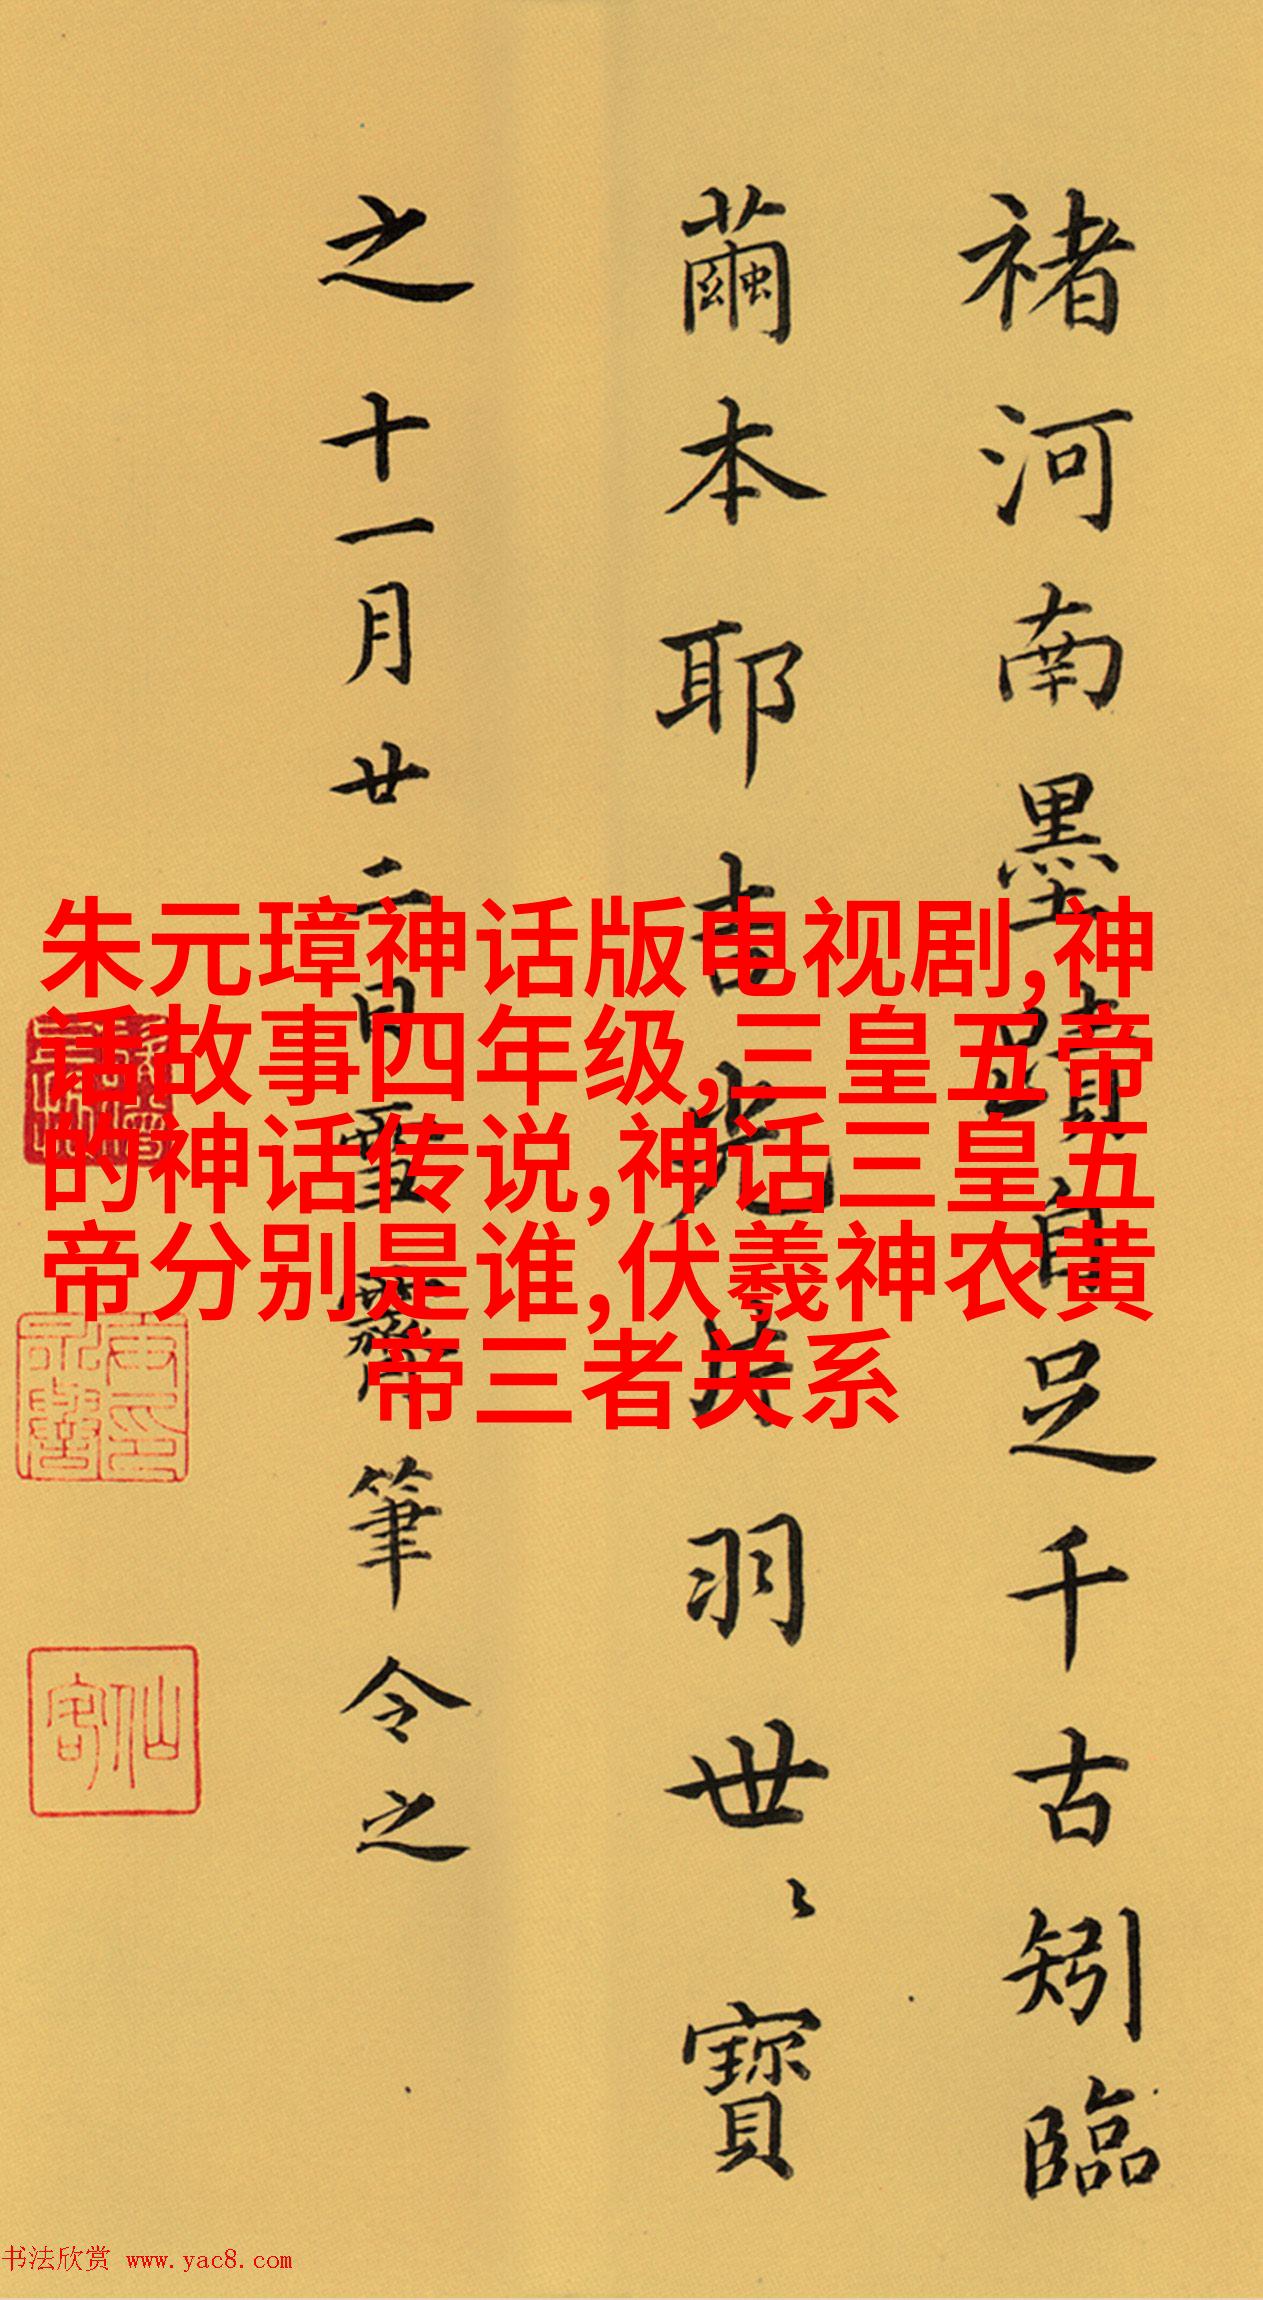 褚河南墨蹟自足千古矧臨
繭本耶吉光片羽世〻寶
之十一月廿二日雪齋筆令之
朱元璋神话版电视剧,神
话故事四年级,三皇五帝
的神话传说,神话三皇五
帝分别是谁,伏羲神农黄
帝三者关系
仙客
书法欣赏 www.yac8.com